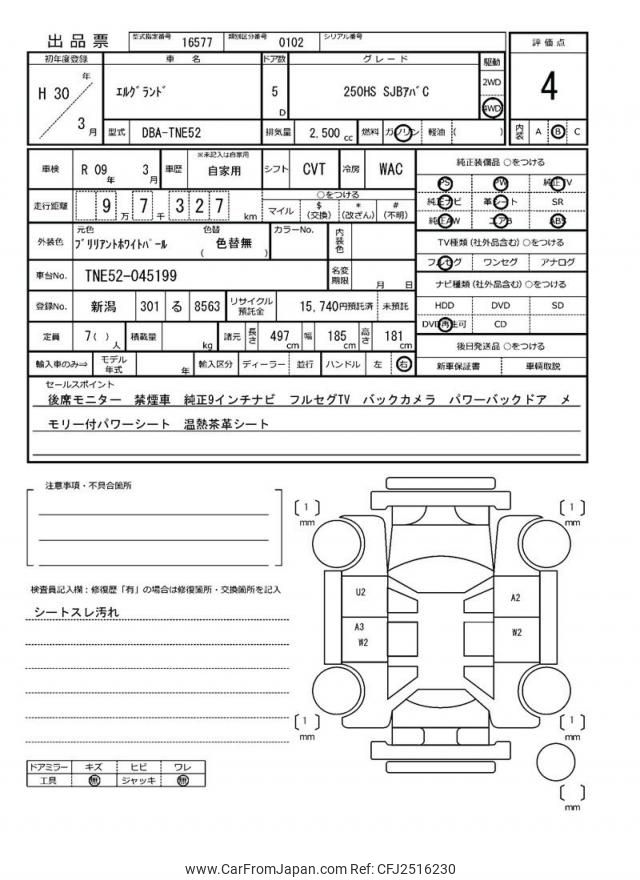 出品票 型式指定番号 16577 類別区分番号 0102 シリアル番号
評価点
4
内装 A B C
初年度登録 車名 ドア数 グレード 駆動
H 30 年 3 月
エルグランド
5 D
250HS SJBアバC
2WD
4WD
型式 DBA-TNE52 排気量 2,500 cc 燃料 ガソリン 軽油 ( )
車検 R 09 年 3 月 車歴 ※未記入は自家用 自家用 シフト CVT 冷房 WAC
走行距離 9 万 7 千 3 2 7 km
○をつける
マイル $ (交換) * (改ざん) # (不明)
外装色 元色 ブリリアントホワイトパール 色替 ( 色替無 ) カラーNo. 内装色
車台No. TNE52-045199 名変期限 月 日
登録No. 新潟 301 る 8563 リサイクル預託金 15,740 円預託済 未預託
定員 7( ) 人 積載量 kg 諸元 長さ 497 cm 幅 185 cm 高さ 181 cm
輸入車のみ⇒ モデル年式 年 輸入区分 ディーラー 並行 ハンドル 左 右
純正装備品 ○をつける
PS PW 純正TV
純正ナビ 革シート SR
純正AW エアB ABS
TV種類 (社外品含む) ○をつける
フルセグ ワンセグ アナログ
ナビ種類 (社外品含む) ○をつける
HDD DVD SD
DVD再生可 CD
後日発送品 ○をつける
新車保証書 車輌取説
セールスポイント
後席モニター 禁煙車 純正9インチナビ フルセグTV バックカメラ パワーバックドア メ
モリー付パワーシート 温熱茶革シート
注意事項・不具合箇所
検査員記入欄:修復歴「有」の場合は修復箇所・交換箇所を記入
シートスレ汚れ
ドアミラー キズ ヒビ ワレ
工具 無 ジャッキ 無
[ 1 ] mm
[ 1 ] mm
U2
A2
A3
W2
W2
[ 1 ] mm
[ 1 ] mm
[ ] mm
www.CarFromJapan.com Ref: CFJ2516230